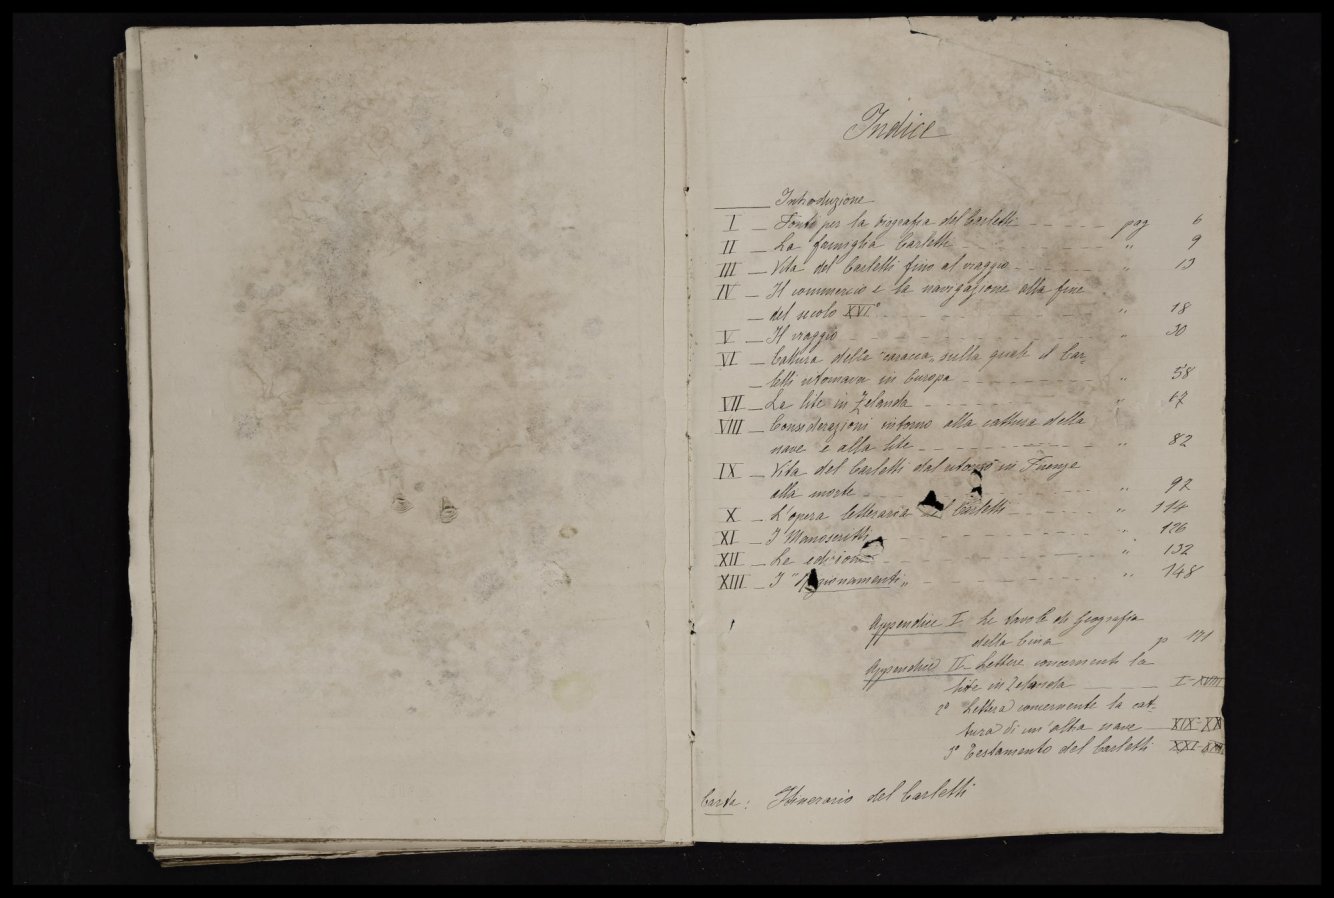 Indice
Introduzione
I — Fonti per la biografia del Carletti - - - - - pag 6
II — La famiglia Carletti - - - - - " 9
III — Vita del Carletti fino al viaggio - - - - - " 13
IV — Il commercio e la navigazione alla fine
— del secolo XVI° - - - - - " 18
V — Il viaggio - - - - - " 30
VI — Cattura della "caracca" sulla quale il Car-
— letti ritornava in Europa - - - - - " 58
VII — La lite in Zelanda - - - - - " 67
VIII — Considerazioni intorno alla cattura della
nave e alla lite - - - - - " 82
IX — Vita del Carletti dal ritorno in Firenze
alla morte - - - - - " 92
X — L'opera letteraria del Carletti - - - - - " 114
XI — I Manoscritti - - - - - " 126
XII — Le edizioni - - - - - " 132
XIII — I "Ragionamenti" - - - - - " 148
Appendice I Le tavole di Geografia
della Cina p 171
Appendice II Lettere concernenti la
lite in Zelanda — I-XVIII
2° Lettera concernente la cat-
tura di un'altra nave — XIX-XX
3° Testamento del Carletti XXI-
Carta: Itinerario del Carletti